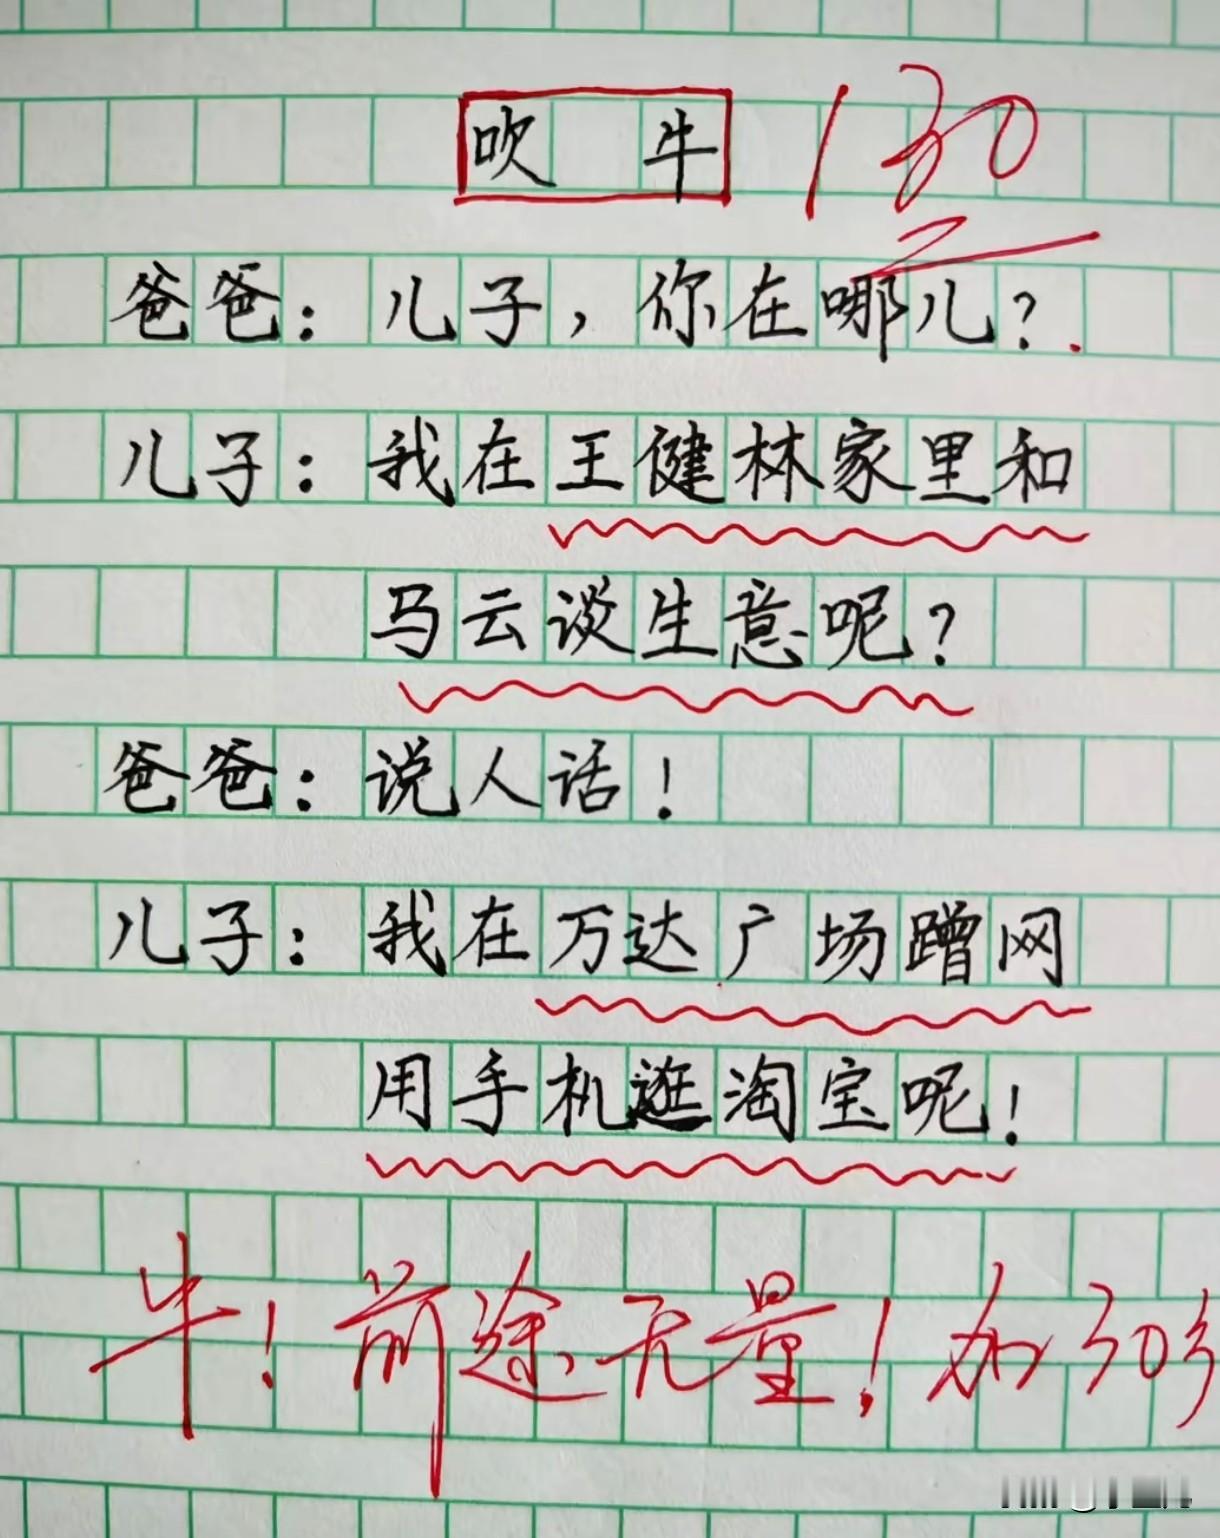 吹牛 130
爸爸：儿子，你在哪儿？
儿子：我在王健林家里和
马云谈生意呢？
爸爸：说人话！
儿子：我在万达广场蹭网
用手机逛淘宝呢！
牛！前途无量！加30